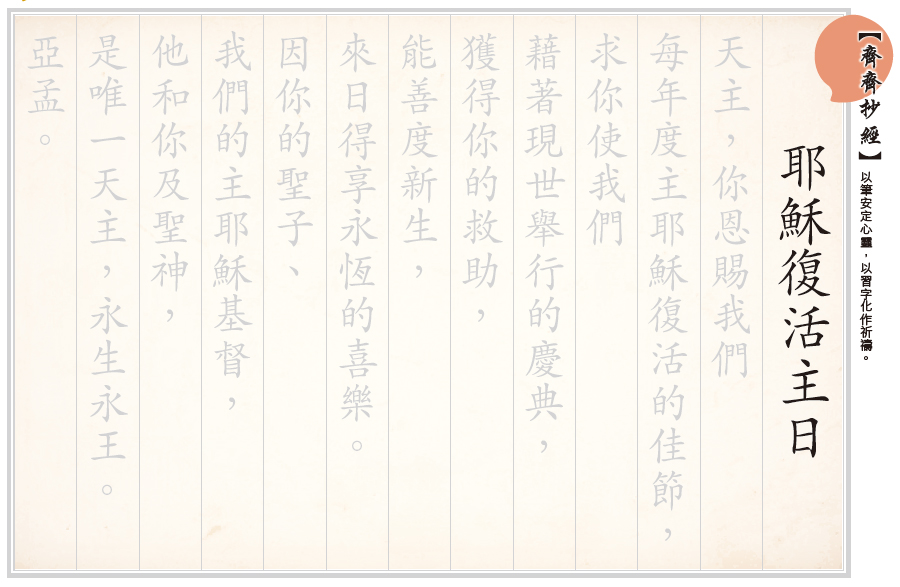 【齊齊抄經】以筆安定心靈，以習字化作祈禱。
耶穌復活主日
天主，你恩賜我們
每年度主耶穌復活的佳節，
求你使我們
藉著現世舉行的慶典，
獲得你的救助，
能善度新生，
來日得享永恆的喜樂。
因你的聖子、
我們的主耶穌基督，
他和你及聖神，
是唯一天主，永生永王。
亞孟。